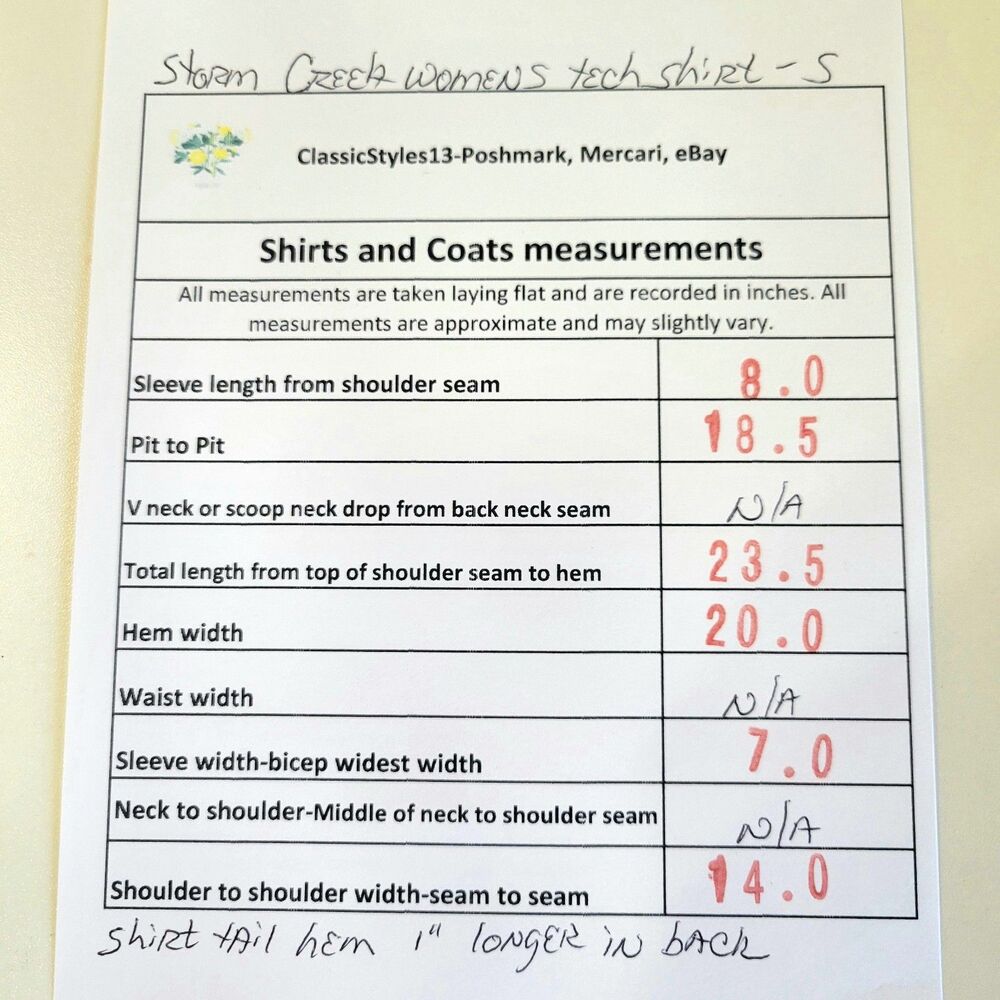 Storm Creek womens tech shirt - S
ClassicStyles13-Poshmark, Mercari, eBay
Shirts and Coats measurements
All measurements are taken laying flat and are recorded in inches. All
measurements are approximate and may slightly vary.
Sleeve length from shoulder seam 8.0
Pit to Pit 18.5
V neck or scoop neck drop from back neck seam N/A
Total length from top of shoulder seam to hem 23.5
Hem width 20.0
Waist width N/A
Sleeve width-bicep widest width 7.0
Neck to shoulder-Middle of neck to shoulder seam N/A
Shoulder to shoulder width-seam to seam 14.0
shirt tail hem 1" longer in back